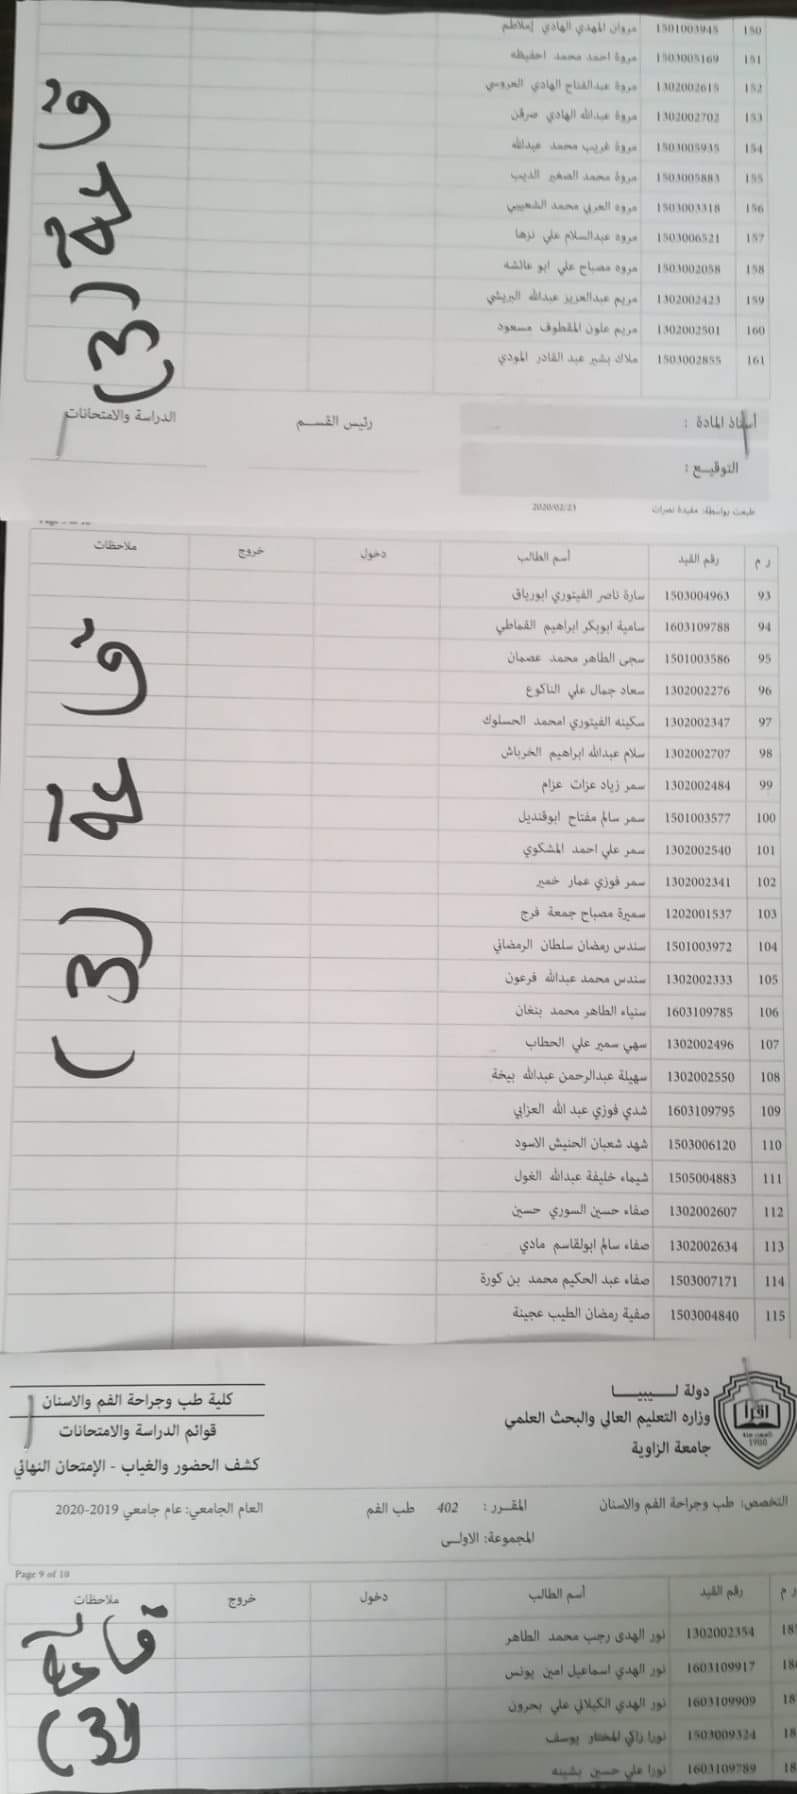 150 1501003945 مروان المهدي الهادي إملاطم
151 1503005169 مروة احمد محمد احفيظه
152 1302002615 مروة عبدالفتاح الهادي العروسي
153 1302002702 مروة عبدالله الهادي صرقن
154 1503005935 مروة غريب محمد عبدالله
155 1503005883 مروة محمد الصغير الديب
156 1503003318 مروه العربي محمد الشعيبي
157 1503006521 مروه عبدالسلام علي نزها
158 1503002058 مروه مصباح علي ابو عائشه
159 1302002423 مريم عبدالعزيز عبدالله البريشي
160 1302002501 مريم علون المقطوف مسعود
161 1503002855 ملاك بشير عبد القادر المودي
قاعة (3)
أستاذ المادة : رئيس القسم الدراسة والامتحانات
التوقيع :
طبعت بواسطة: مفيدة نصرات 2020/02/23
ر م رقم القيد أسم الطالب دخول خروج ملاحظات
93 1503004963 سارة ناصر الفيتوري ابورياق
94 1603109788 سامية ابوبكر ابراهيم القماطي
95 1501003586 سجى الطاهر محمد عصمان
96 1302002276 سعاد جمال علي الناكوع
97 1302002347 سكينه الفيتوري امحمد الحسلوك
98 1302002707 سلام عبدالله ابراهيم الخرباش
99 1302002484 سمر زياد عزات عزام
100 1501003577 سمر سالم مفتاح ابوقنديل
101 1302002540 سمر علي احمد المشكوي
102 1302002341 سمر فوزي عمار خمير
103 1202001537 سميرة مصباح جمعة فرج
104 1501003972 سندس رمضان سلطان الرمضاني
105 1302002333 سندس محمد عبدالله فرعون
106 1603109785 سنياء الطاهر محمد بنغان
107 1302002496 سهي سمير علي الحطاب
108 1302002550 سهيلة عبدالرحمن عبدالله بيخة
109 1603109795 شدي فوزي عبد الله العزابي
110 1503006120 شهد شعبان الحنيش الاسود
111 1505004883 شيماء خليفة عبدالله الغول
112 1302002607 صفاء حسين السوري حسين
113 1302002634 صفاء سالم ابولقاسم مادي
114 1503007171 صفاء عبد الحكيم محمد بن كورة
115 1503004840 صفية رمضان الطيب عجينة
قاعة (3)
اقرأ
1988
دولة ليبيا
وزاره التعليم العالي والبحث العلمي
جامعة الزاوية
كلية طب وجراحة الفم والاسنان
قوائم الدراسة والامتحانات
كشف الحضور والغياب - الإمتحان النهائي
التخصص: طب وجراحة الفم والاسنان المقرر : 402 طب الفم العام الجامعي: عام جامعي 2019-2020
المجموعة: الاولى
Page 9 of 10
ر م رقم القيد أسم الطالب دخول خروج ملاحظات
1302002354 نور الهدى رجب محمد الطاهر
1603109917 نور الهدي اسماعيل امين يونس
1603109909 نور الهدي الكيلاني علي بحرون
1503009324 نورا زاكي المختار يوسف
1603109789 نورا علي حسين بشينه
قاعة (3)